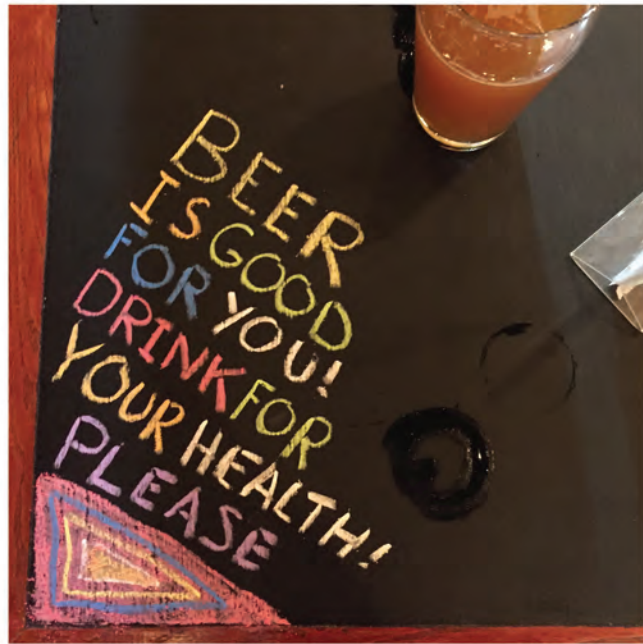 BEER
IS GOOD
FOR YOU!
DRINK FOR
YOUR HEALTH!
PLEASE